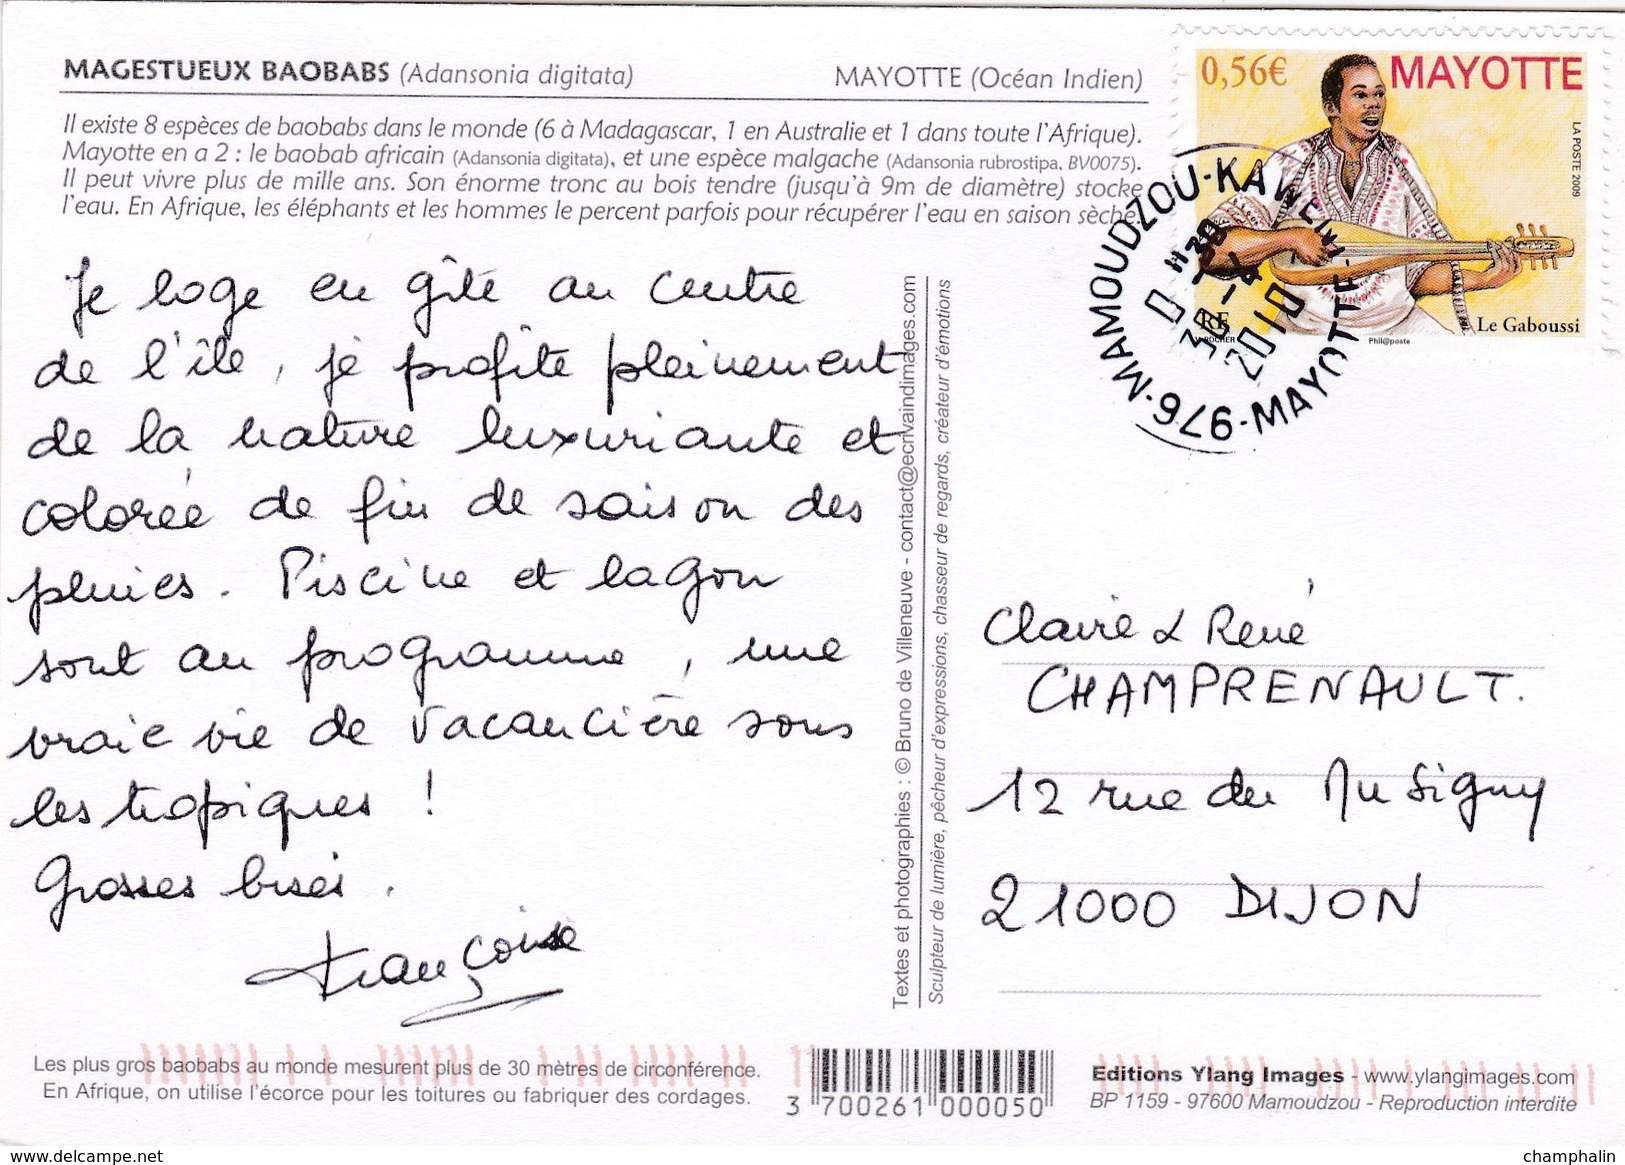 MAGESTUEUX BAOBABS (Adansonia digitata)
MAYOTTE (Océan Indien)
Il existe 8 espèces de baobabs dans le monde (6 à Madagascar, 1 en Australie et 1 dans toute l'Afrique).
Mayotte en a 2 : le baobab africain (Adansonia digitata), et une espèce malgache (Adansonia rubrostipa, BV0075).
Il peut vivre plus de mille ans. Son énorme tronc au bois tendre (jusqu'à 9m de diamètre) stocke
l'eau. En Afrique, les éléphants et les hommes le percent parfois pour récupérer l'eau en saison sèche.
0,56€ MAYOTTE
LA POSTE 2009
RF
Le Gaboussi
Phil@poste
976-MAMOUDZOU-KAWENI
MAYOTTE
30-4
2010
Je loge en gîte au centre
de l'île, je profite pleinement
de la nature luxuriante et
colorée de fin de saison des
pluies. Piscine et lagon
sont au programme, une
vraie vie de vacancière sous
les tropiques !
Grosses bises.
Françoise
Textes et photographies : © Bruno de Villeneuve - contact@ecrivaindimages.com
Sculpteur de lumière, pêcheur d'expressions, chasseur de regards, créateur d'émotions
Claire & René
CHAMPRENAULT.
12 rue du Musigny
21000 DIJON
Les plus gros baobabs au monde mesurent plus de 30 mètres de circonférence.
En Afrique, on utilise l'écorce pour les toitures ou fabriquer des cordages.
3 700261 000050
Editions Ylang Images - www.ylangimages.com
BP 1159 - 97600 Mamoudzou - Reproduction interdite
www.delcampe.net
champhalin